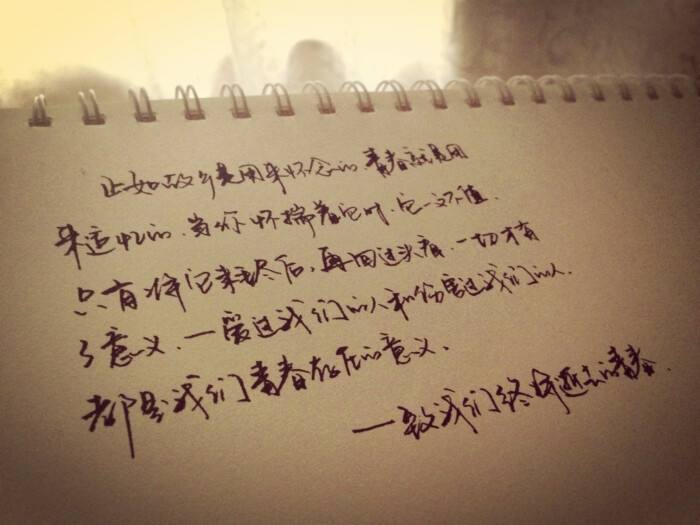 正如故乡是用来怀念的，青春就是用
来追忆的，当你怀揣着它时，它一文不值，
只有将它耗尽后，再回过头看，一切才有
了意义，一爱过我们的人和伤害过我们的人，
都是我们青春存在的意义。
—致我们终将逝去的青春.